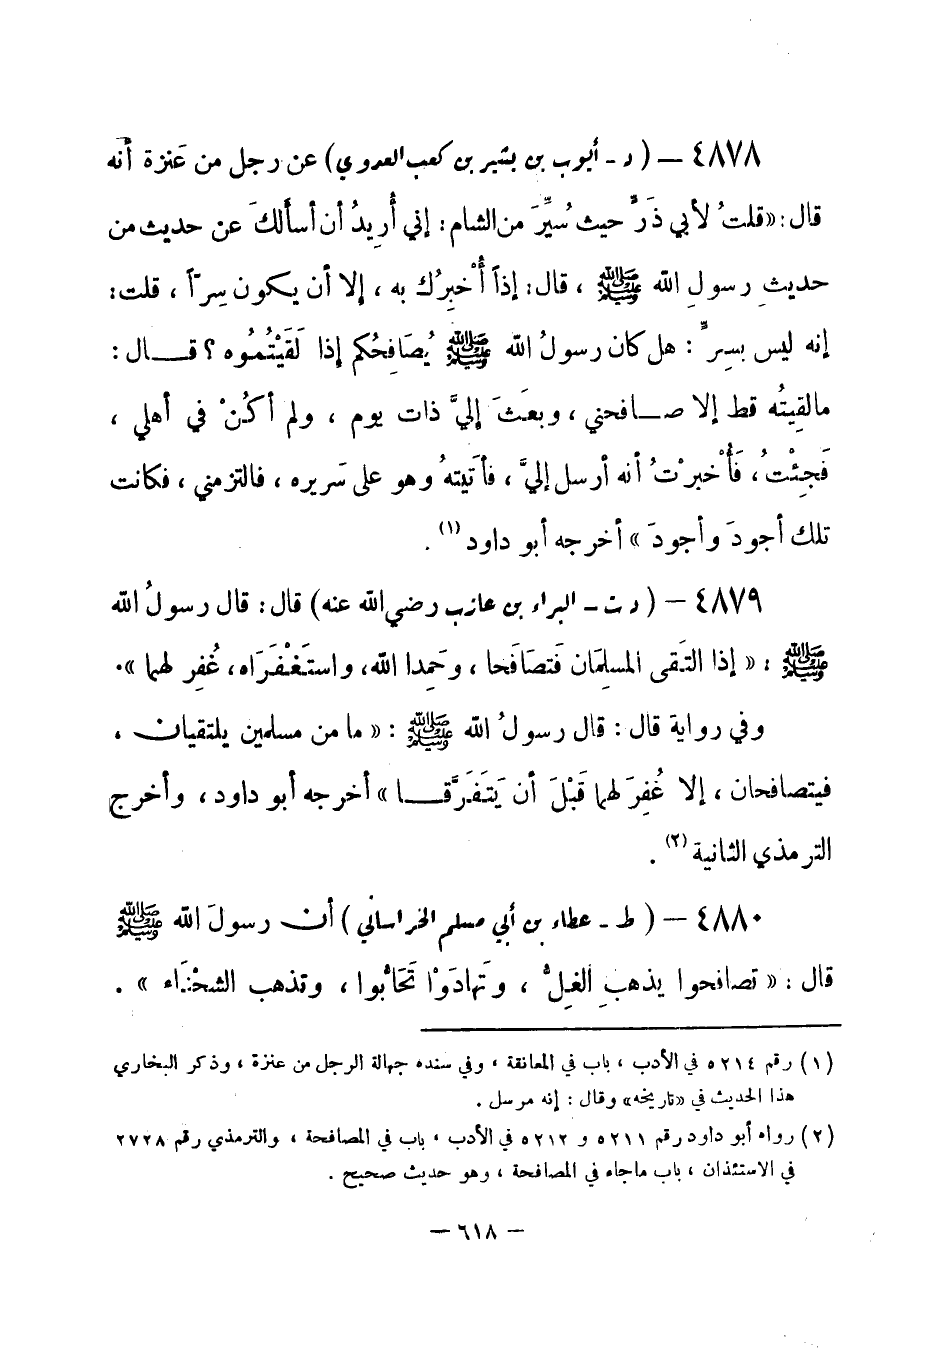 ٤٨٧٨ — ( د - أيوب بن بشير بن كعب العدوي ) عن رجل من عَنزة أنه
قال : « قلتُ لأبي ذَرٍّ حيث سُيِّرَ من الشام : إني أُرِيدُ أن أسألكَ عن حديث من
حديثِ رسولِ الله ﷺ ، قال : إذاً أُخبِرُك به ، إلا أن يكون سِرّاً ، قلت :
إنه ليس بسِرٍّ : هل كان رسولُ الله ﷺ يُصَافِحُكم إذا لَقَيْتُمُوه ؟ قــال :
ما لقِيتُه قط إلا صــافحني ، وبعَثَ إليَّ ذات يوم ، ولم أكُنْ في أهلي ،
فَجِئْتُ ، فَأُخْبِرْتُ أنه أرسل إليَّ ، فأتَيتهُ وهو على سَريره ، فالتزمني ، فكانت
تلك أجودَ وأجودَ » أخرجه أبو داود (١) .
٤٨٧٩ — ( د ت - البراء بن عازب رضي الله عنه ) قال : قال رسولُ الله
ﷺ : « إذا التَقى المسلِمَان فَتصَافَحا ، وحَمِدا الله ، واستَغْفَرَاه ، غُفِر لهما » .
وفي رواية قال : قال رسولُ الله ﷺ : « ما من مسلمين يلتقيان ،
فيتصافحان ، إلا غُفِرَ لهما قَبْلَ أن يَتَفَرَّقــا » أخرجه أبو داود ، وأخرج
الترمذي الثانية (٢) .
٤٨٨٠ — ( ط - عطاء بن أبي مسلم الخراساني ) أن رسولَ الله ﷺ
قال : « تصافحوا يذهبِ الغِلُّ ، وتَهادَوْا تَحَابُّوا ، وتذهب الشحْنَاء » .
(١) رقم ٥٢١٤ في الأدب ، باب في المعانقة ، وفي سنده جهالة الرجل من عنزة ، وذكر البخاري
هذا الحديث في « تاريخه » وقال : إنه مرسل .
(٢) رواه أبو داود رقم ٥٢١١ و ٥٢١٢ في الأدب ، باب في المصافحة ، والترمذي رقم ٢٧٢٨
في الاستئذان ، باب ماجاء في المصافحة ، وهو حديث صحيح .
— ٦١٨ —